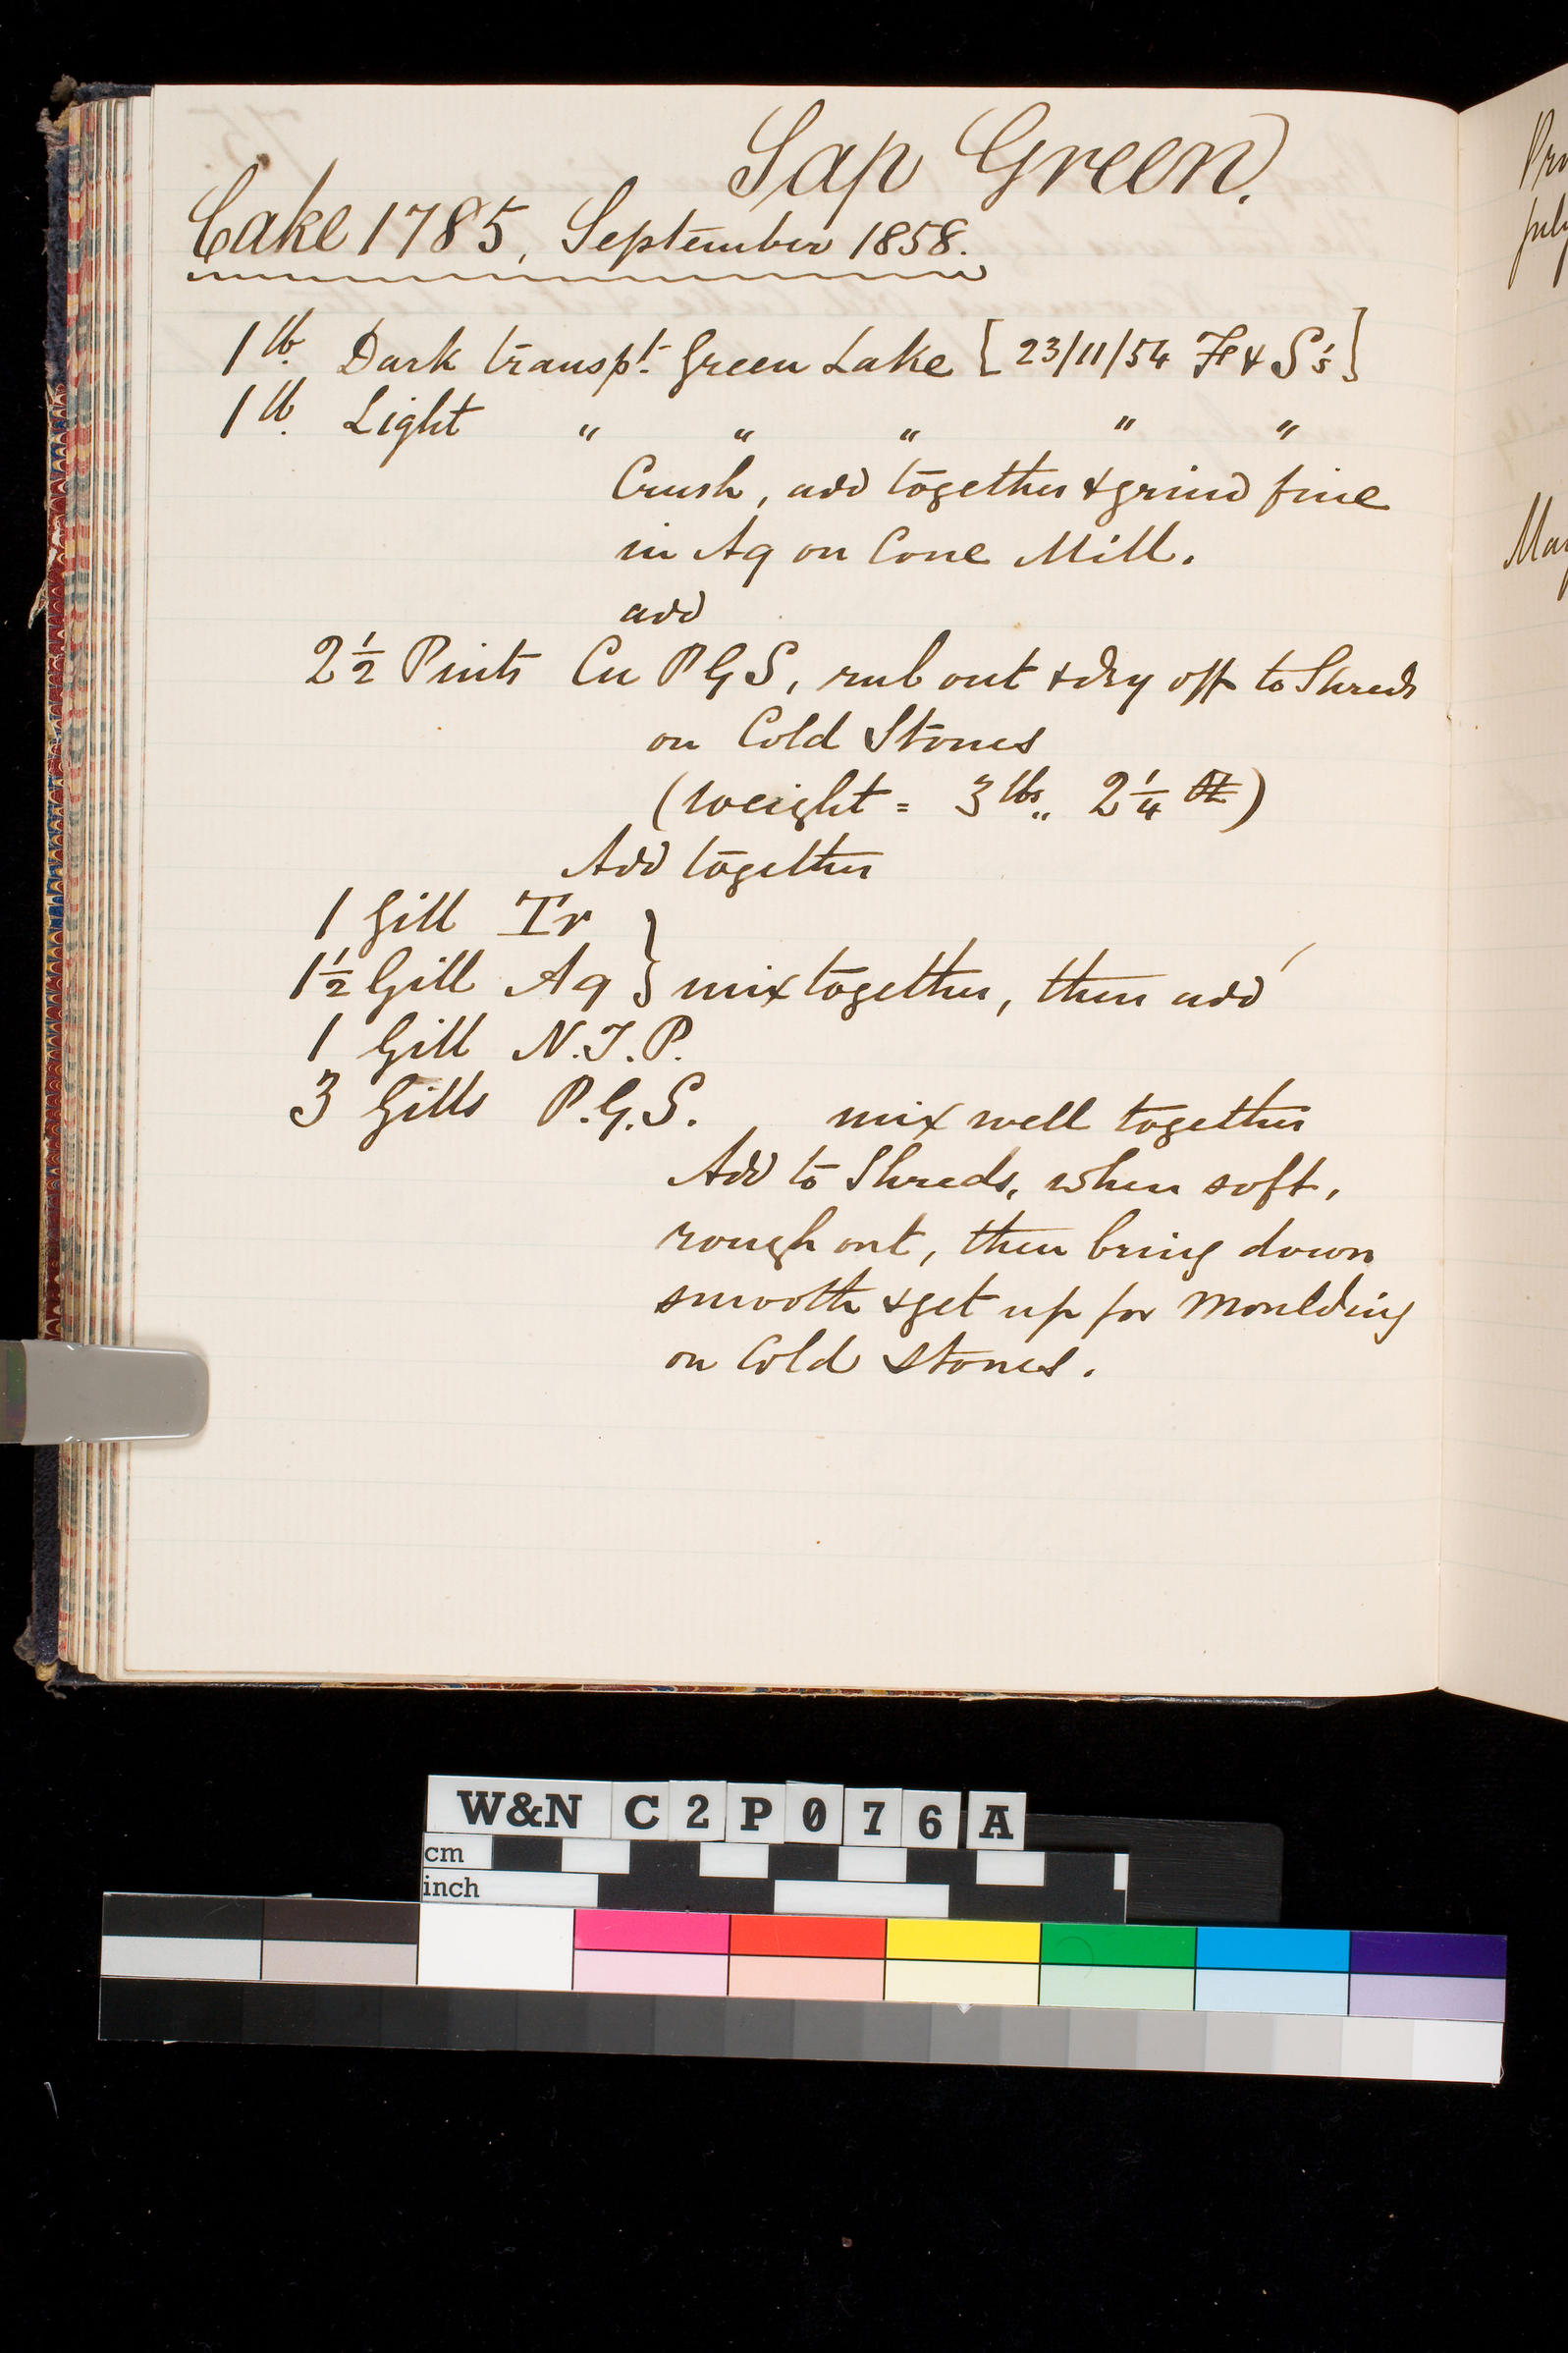 Sap Green.
Cake 1785, September 1858.
1 lb. Dark transpt. Green Lake [23/11/54 & S's]
1 lb. Light " " " " "
Crush, add together & grind fine
in Aq on Cone Mill.
add
2½ Pints Cu P G S, rub out & dry off to Shreds
on Cold Stones
(weight = 3 lbs,, 2¼ oz)
Add together
1 Gill Tr }
1½ Gill Aq } mix together, then add
1 Gill N.T.P.
3 Gills P.G.S. mix well together
Add to Shreds, when soft,
rough out, then bring down
smooth & get up for Moulding
on Cold Stones.
July
W&N C2P076A
cm
inch